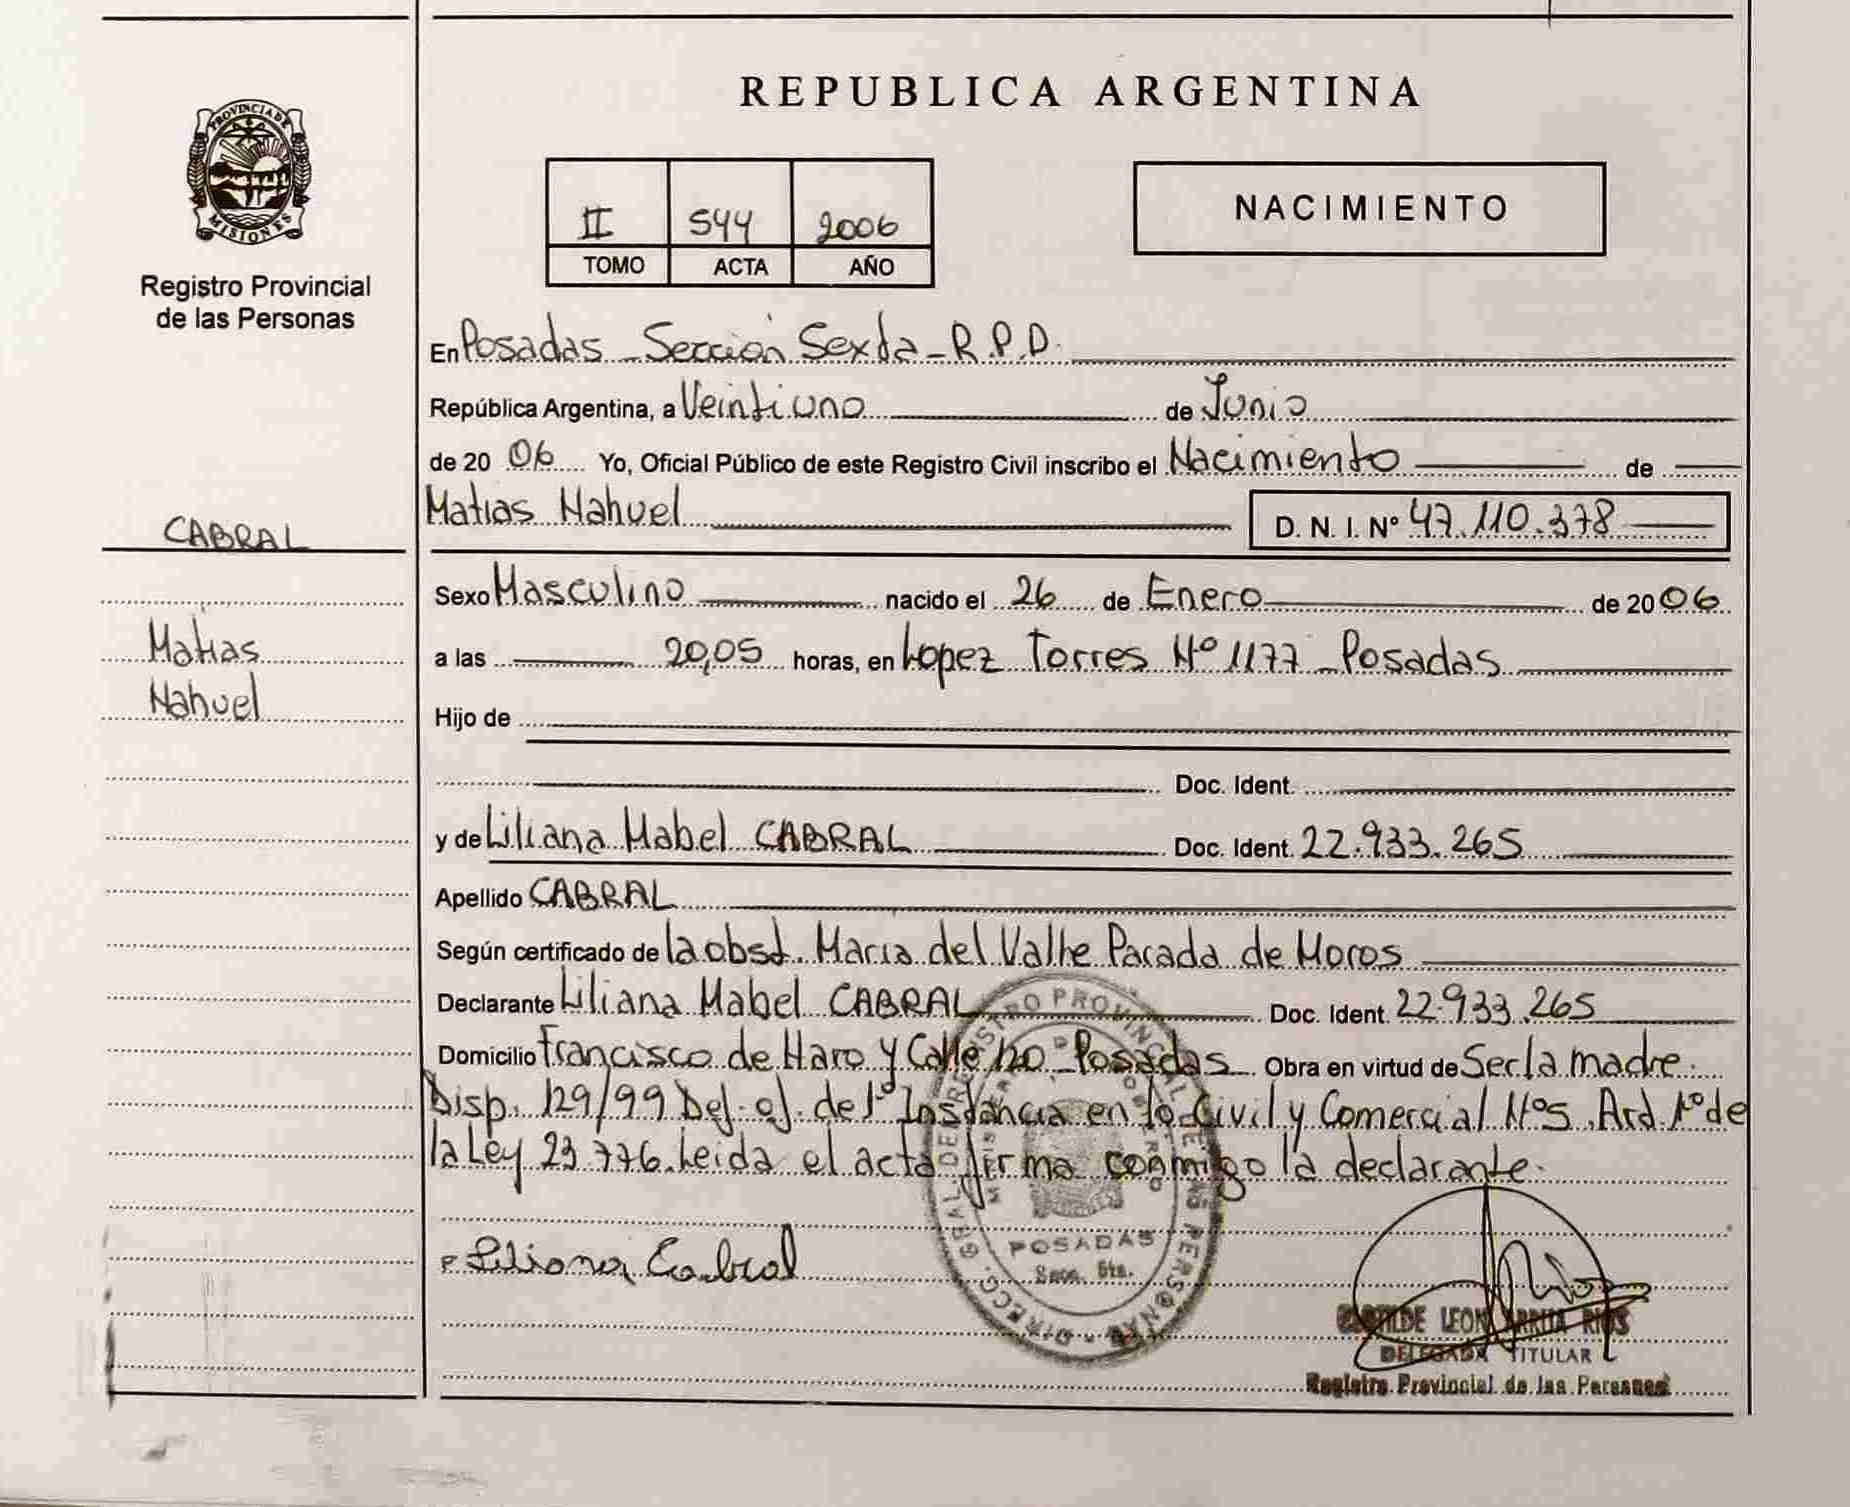 REPUBLICA ARGENTINA
PROVINCIA DE
MISIONES
Registro Provincial
de las Personas
II 544 2006
TOMO ACTA AÑO
NACIMIENTO
En Posadas - Sección Sexta - R.P.D.
República Argentina, a Veintiuno de Junio
de 2006 Yo, Oficial Público de este Registro Civil inscribo el Nacimiento de
Matias Nahuel D. N. I. Nº 47.110.378
CABRAL
Matias
Nahuel
Sexo Masculino nacido el 26 de Enero de 2006
a las 20,05 horas, en Lopez Torres Nº 1177 - Posadas
Hijo de
Doc. Ident.
y de Liliana Mabel CABRAL Doc. Ident. 22.933.265
Apellido CABRAL
Según certificado de la obst. Maria del Valle Parada de Moros
Declarante Liliana Mabel CABRAL Doc. Ident. 22.933.265
Domicilio Francisco de Haro y Calle 120 - Posadas Obra en virtud de Ser la madre.
Disp. 129/99 Def. of. de 1º Instancia en lo Civil y Comercial Nº5. Art. 1º de
la Ley 23.776. Leida el acta firma conmigo la declarante.
Liliana Cabral
POSADAS
Secc. 6ta.
LEON ARRUA RIOS
DELEGADA TITULAR
Registro Provincial de las Personas